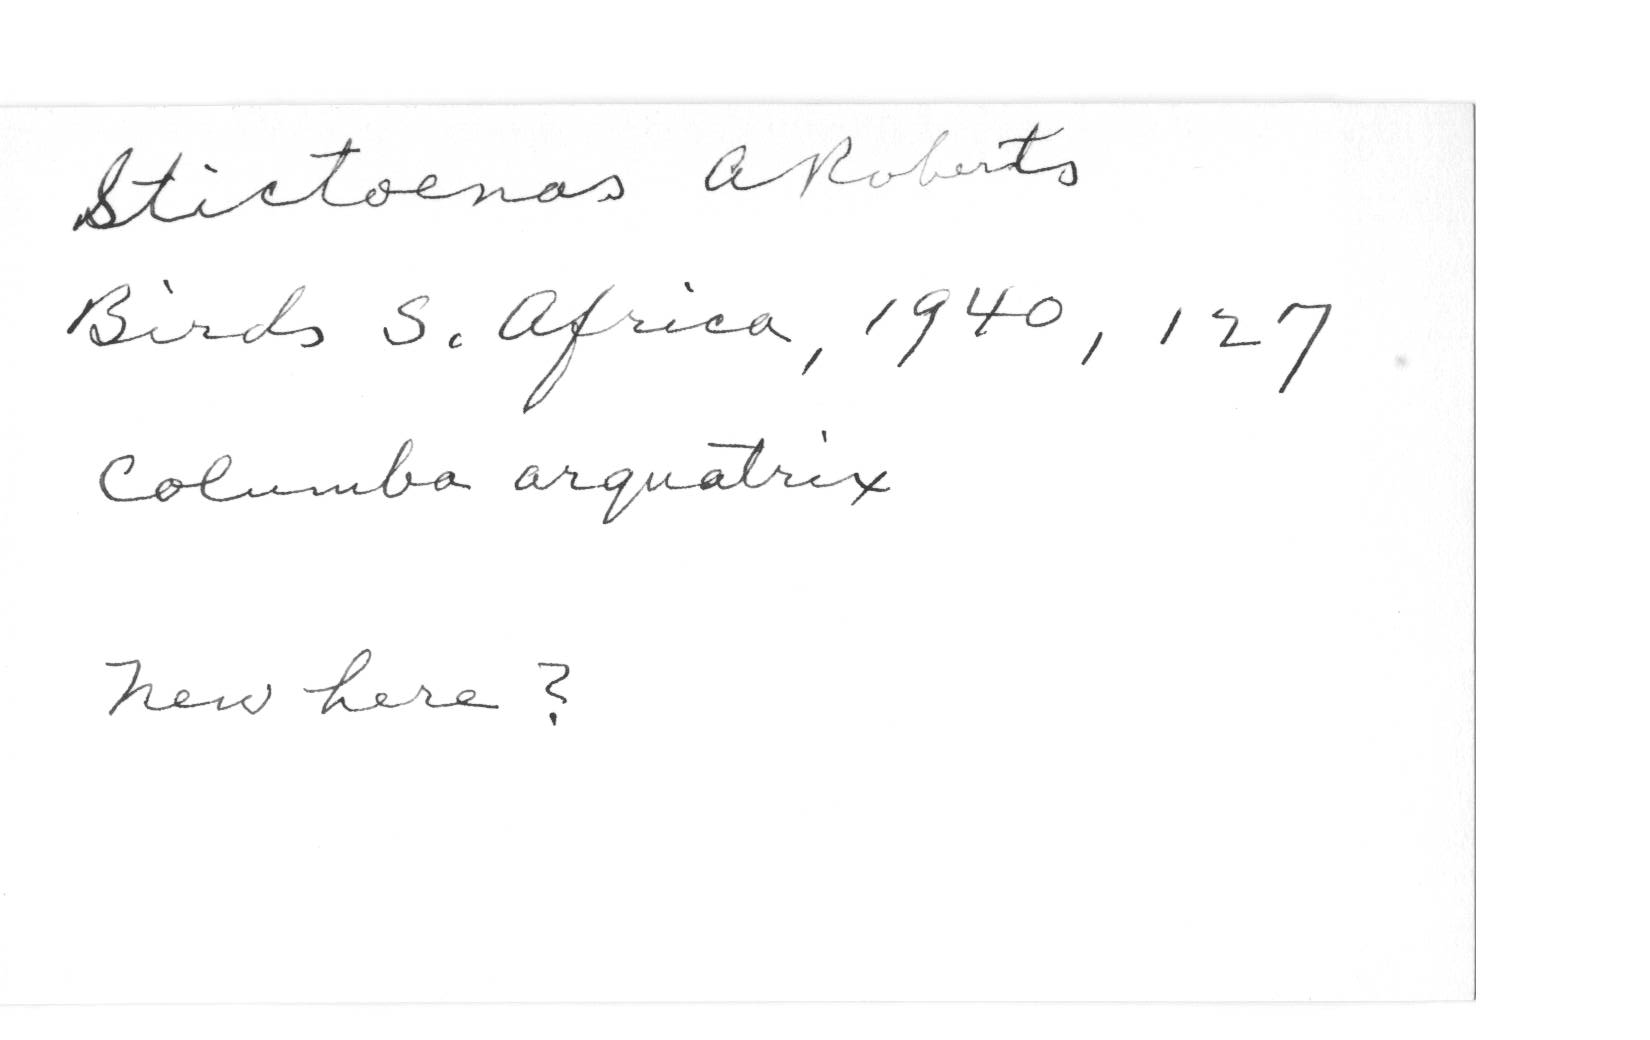 Stictoenas A Roberts
Birds S. Africa, 1940, 127
Columba arquatrix
New here?